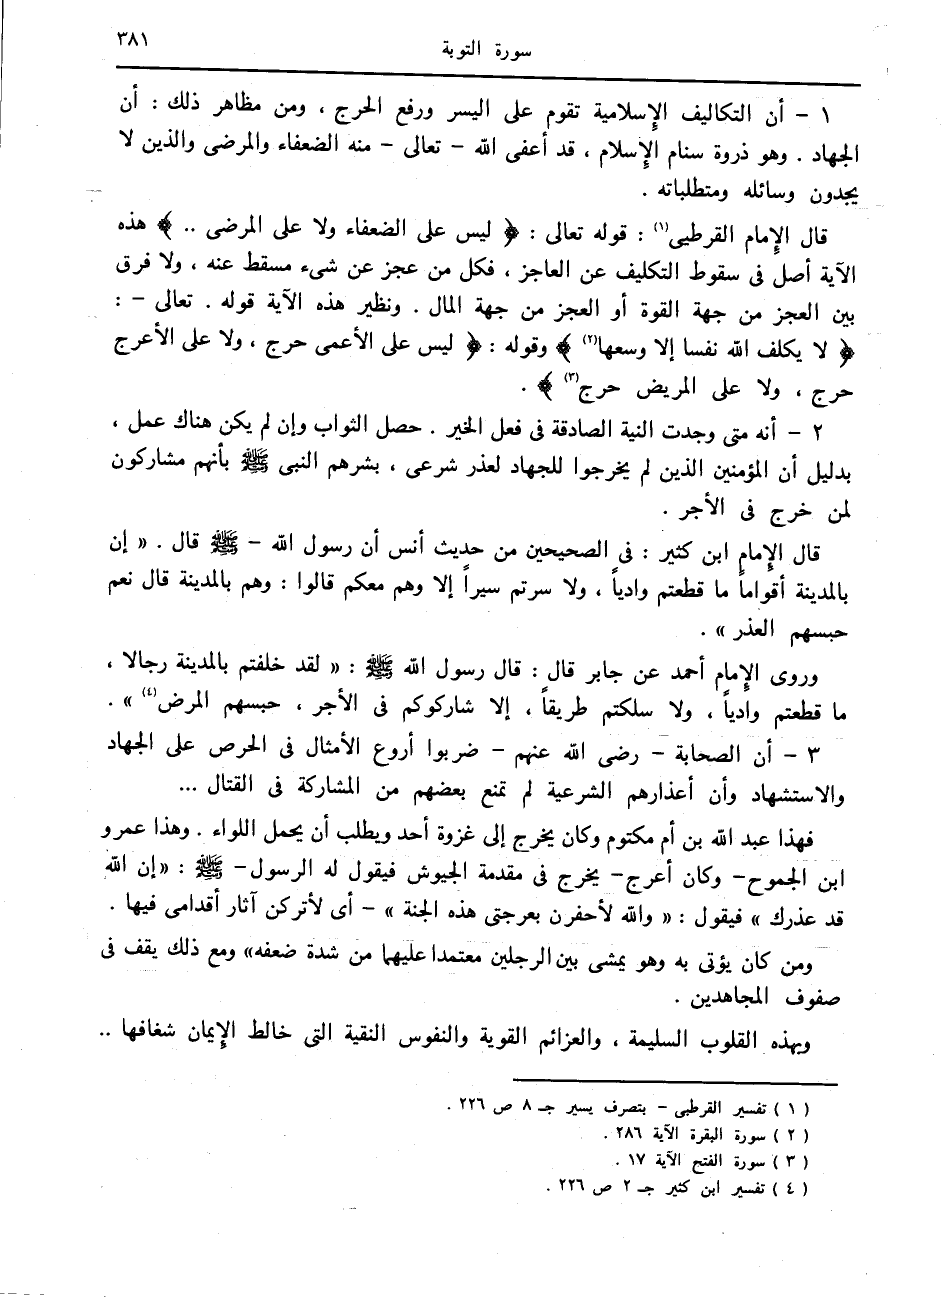 ٣٨١
سورة التوبة
١ – أن التكاليف الإسلامية تقوم على اليسر ورفع الحرج ، ومن مظاهر ذلك : أن
الجهاد . وهو ذروة سنام الإسلام ، قد أعفى الله – تعالى – منه الضعفاء والمرضى والذين لا
يجدون وسائله ومتطلباته .
قال الإمام القرطبى(١) : قوله تعالى : ﴿ ليس على الضعفاء ولا على المرضى .. ﴾ هذه
الآية أصل فى سقوط التكليف عن العاجز ، فكل من عجز عن شىء مسقط عنه ، ولا فرق
بين العجز من جهة القوة أو العجز من جهة المال . ونظير هذه الآية قوله . تعالى – :
﴿ لا يكلف الله نفسا إلا وسعها(٢) ﴾ وقوله : ﴿ ليس على الأعمى حرج ، ولا على الأعرج
حرج ، ولا على المريض حرج(٣) ﴾ .
٢ – أنه متى وجدت النية الصادقة فى فعل الخير . حصل الثواب وإن لم يكن هناك عمل ،
بدليل أن المؤمنين الذين لم يخرجوا للجهاد لعذر شرعى ، بشرهم النبى ﷺ بأنهم مشاركون
لمن خرج فى الأجر .
قال الإمام ابن كثير : فى الصحيحين من حديث أنس أن رسول الله – ﷺ قال . « إن
بالمدينة أقواماً ما قطعتم وادياً ، ولا سرتم سيراً إلا وهم معكم قالوا : وهم بالمدينة قال نعم
حبسهم العذر » .
وروى الإمام أحمد عن جابر قال : قال رسول الله ﷺ : « لقد خلفتم بالمدينة رجالا ،
ما قطعتم وادياً ، ولا سلكتم طريقاً ، إلا شاركوكم فى الأجر ، حبسهم المرض(٤) » .
٣ – أن الصحابة – رضى الله عنهم – ضربوا أروع الأمثال فى الحرص على الجهاد
والاستشهاد وأن أعذارهم الشرعية لم تمنع بعضهم من المشاركة فى القتال ...
فهذا عبد الله بن أم مكتوم وكان يخرج إلى غزوة أحد ويطلب أن يحمل اللواء . وهذا عمرو
ابن الجموح– وكان أعرج– يخرج فى مقدمة الجيوش فيقول له الرسول– ﷺ : «إن الله
قد عذرك » فيقول : « والله لأحفرن بعرجتى هذه الجنة » – أى لأتركن آثار أقدامى فيها .
ومن كان يؤتى به وهو يمشى بين الرجلين معتمدا عليهما من شدة ضعفه» ومع ذلك يقف فى
صفوف المجاهدين .
وبهذه القلوب السليمة ، والعزائم القوية والنفوس النقية التى خالط الإيمان شغافها ..
( ١ ) تفسير القرطبى – بتصرف يسير جـ ٨ ص ٢٢٦ .
( ٢ ) سورة البقرة الآية ٢٨٦ .
( ٣ ) سورة الفتح الآية ١٧ .
( ٤ ) تفسير ابن كثير جـ ٢ ص ٢٢٦ .